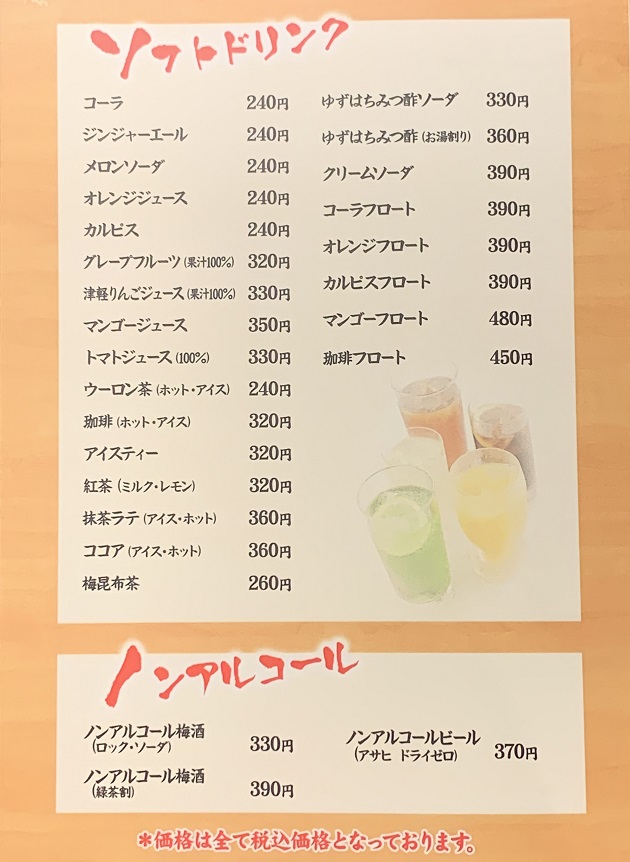 ソフトドリンク
コーラ 240円
ジンジャーエール 240円
メロンソーダ 240円
オレンジジュース 240円
カルピス 240円
グレープフルーツ(果汁100%) 320円
津軽りんごジュース(果汁100%) 330円
マンゴージュース 350円
トマトジュース(100%) 330円
ウーロン茶(ホット・アイス) 240円
珈琲(ホット・アイス) 320円
アイスティー 320円
紅茶(ミルク・レモン) 320円
抹茶ラテ(アイス・ホット) 360円
ココア(アイス・ホット) 360円
梅昆布茶 260円
ゆずはちみつ酢ソーダ 330円
ゆずはちみつ酢(お湯割り) 360円
クリームソーダ 390円
コーラフロート 390円
オレンジフロート 390円
カルピスフロート 390円
マンゴーフロート 480円
珈琲フロート 450円
ノンアルコール
ノンアルコール梅酒
(ロック・ソーダ) 330円
ノンアルコール梅酒
(緑茶割) 390円
ノンアルコールビール
(アサヒ ドライゼロ) 370円
*価格は全て税込価格となっております。